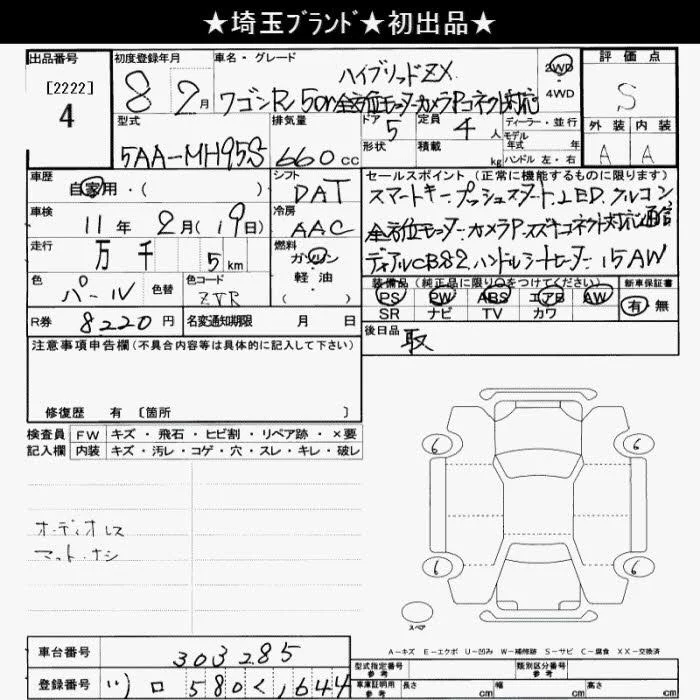 ★埼玉ブランド★初出品★
出品番号 初度登録年月 車名・グレード 評価点
[2222]
4
8 2月
ハイブリッドZX
ワゴンR 50th全方位モニターカメラPコネクト対応
2WD
・
4WD
S
型式 排気量 ドア 定員 ディーラー・並行 外装 内装
5AA-MH95S 660cc 5 4人
モデル
年式 年
形状 積載 kg ハンドル 左・右
A A
車歴 自家用・( )
シフト DAT
セールスポイント (正常に機能するものに限ります)
スマートキー プッシュスタート LED クルコン
車検 11年 2月(19日)
冷房 AAC
全方位モニターカメラP スズキコネクト対応通信
走行 万 千 5km
燃料 ガソリン
・
軽油
( )
ディアルCB82 ハンドルシートヒーター 15AW
色 パール 色替 色コード ZVR
装備品 (純正品に限り○をつけてください) 新車保証書
PS PW ABS エアB AW
SR ナビ TV カワ
有・無
R券 8220円 名変通知期限 月 日
後日品 取
注意事項申告欄 (不具合内容等は具体的に記入して下さい)
修復歴 有 〔箇所 〕
検査員 FW キズ・飛石・ヒビ割・リペア跡・×要
記入欄 内装 キズ・汚レ・コゲ・穴・スレ・キレ・破レ
オーディオレス
マット・ナシ
6 6
6 6
スペア
A－キズ E－エクボ U－凹み W－補修跡 S－サビ C－腐食 XX－交換済
車台番号 303285
登録番号 580 く 1644
型式指定番号 参考 類別区分番号 参考
車庫証明用 参考 長さ cm 幅 cm 高さ cm